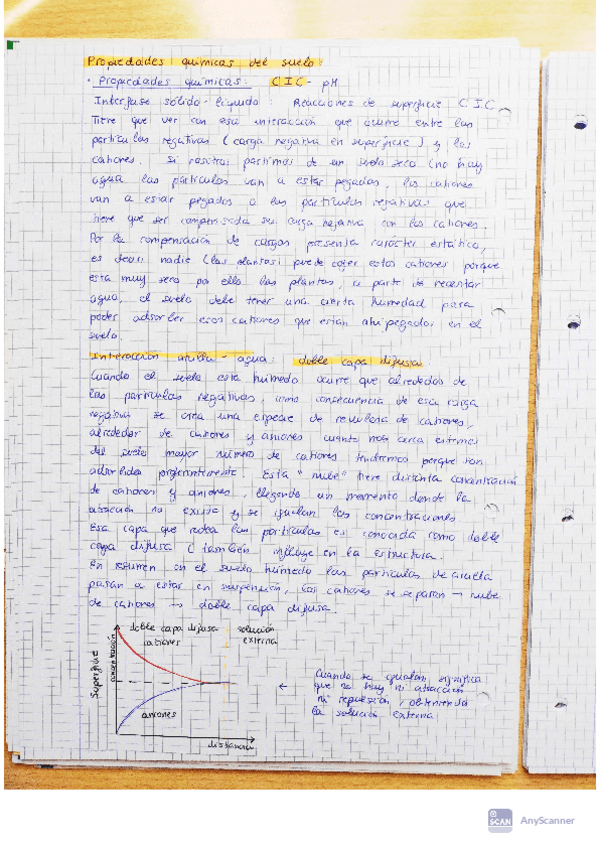 Propiedades químicas del suelo:
• Propiedades químicas: CIC - pH
Interfase sólido-líquido: Reacciones de superficie C.I.C
Tiene que ver con esa interacción que ocurre entre las
partículas negativas (carga negativa en superficie) y los
cationes. Si nosotros partimos de un suelo seco (no hay
agua las partículas van a estar pegadas, los cationes
van a estar pegados a las partículas negativas que
tiene que ser compensada su carga negativa con los cationes.
Por la compensación de cargas presenta carácter estático,
es decir nadie (las plantas) puede coger estos cationes porque
esta muy seco por ello las plantas, a parte de necesitar
agua, el suelo debe tener una cierta humedad para
poder adsorber esos cationes que están ahí pegados en el
suelo.
Interacción arcilla - agua: doble capa difusa
Cuando el suelo está húmedo ocurre que alrededor de
las partículas negativas, como consecuencia de esa carga
negativa se crea una especie de nebulosa de cationes,
alrededor de cationes y aniones cuanto más cerca estemos
del suelo mayor número de cationes tendremos porque son
adsorbidos preferentemente. Esta "nube" tiene distinta concentración
de cationes y aniones, llegando un momento donde la
atracción no existe y se igualan las concentraciones
Esa capa que rodea las partículas es conocida como doble
capa difusa (también influye en la estructura.
En resumen en el suelo húmedo las partículas de arcilla
pasan a estar en suspensión, los cationes se separan → nube
de cationes → doble capa difusa
doble capa difusa solución
externa
cationes
Superficie
concentración
aniones
distancia
← Cuando se igualan significa
que no hay ni atracción
ni repulsión, obteniendo
la solución externa
SCAN AnyScanner